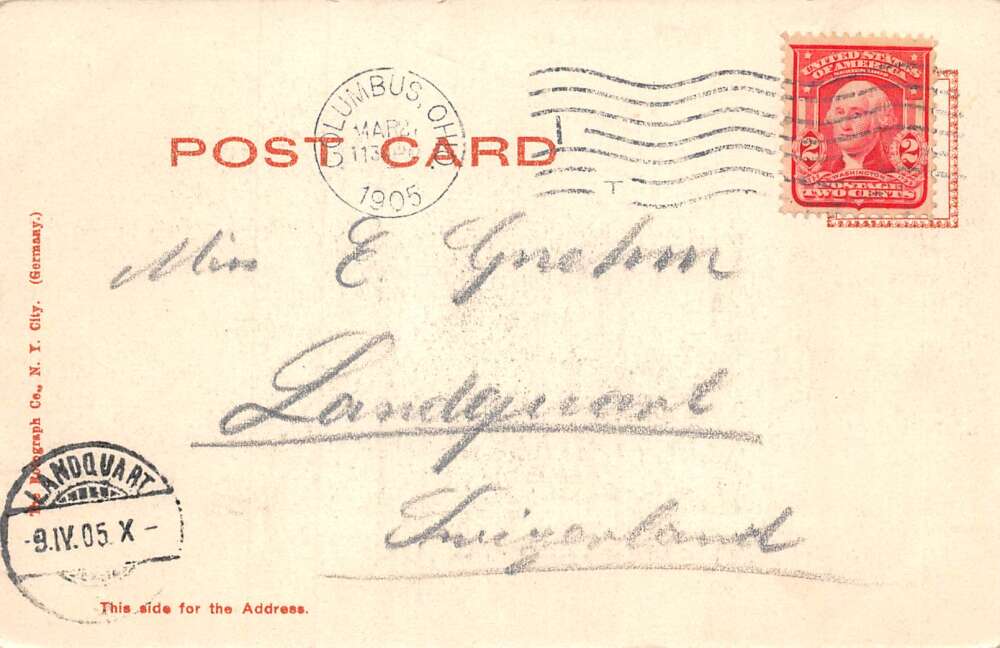 POST CARD
COLUMBUS, OHIO
MAR
1905
UNITED STATES
OF AMERICA
2 2
WASHINGTON
TWO CENTS
Miss E Gnehm
Landquart
Swizerland
Co., N. Y. City. (Germany.)
LANDQUART
-9.IV.05. X-
This side for the Address.